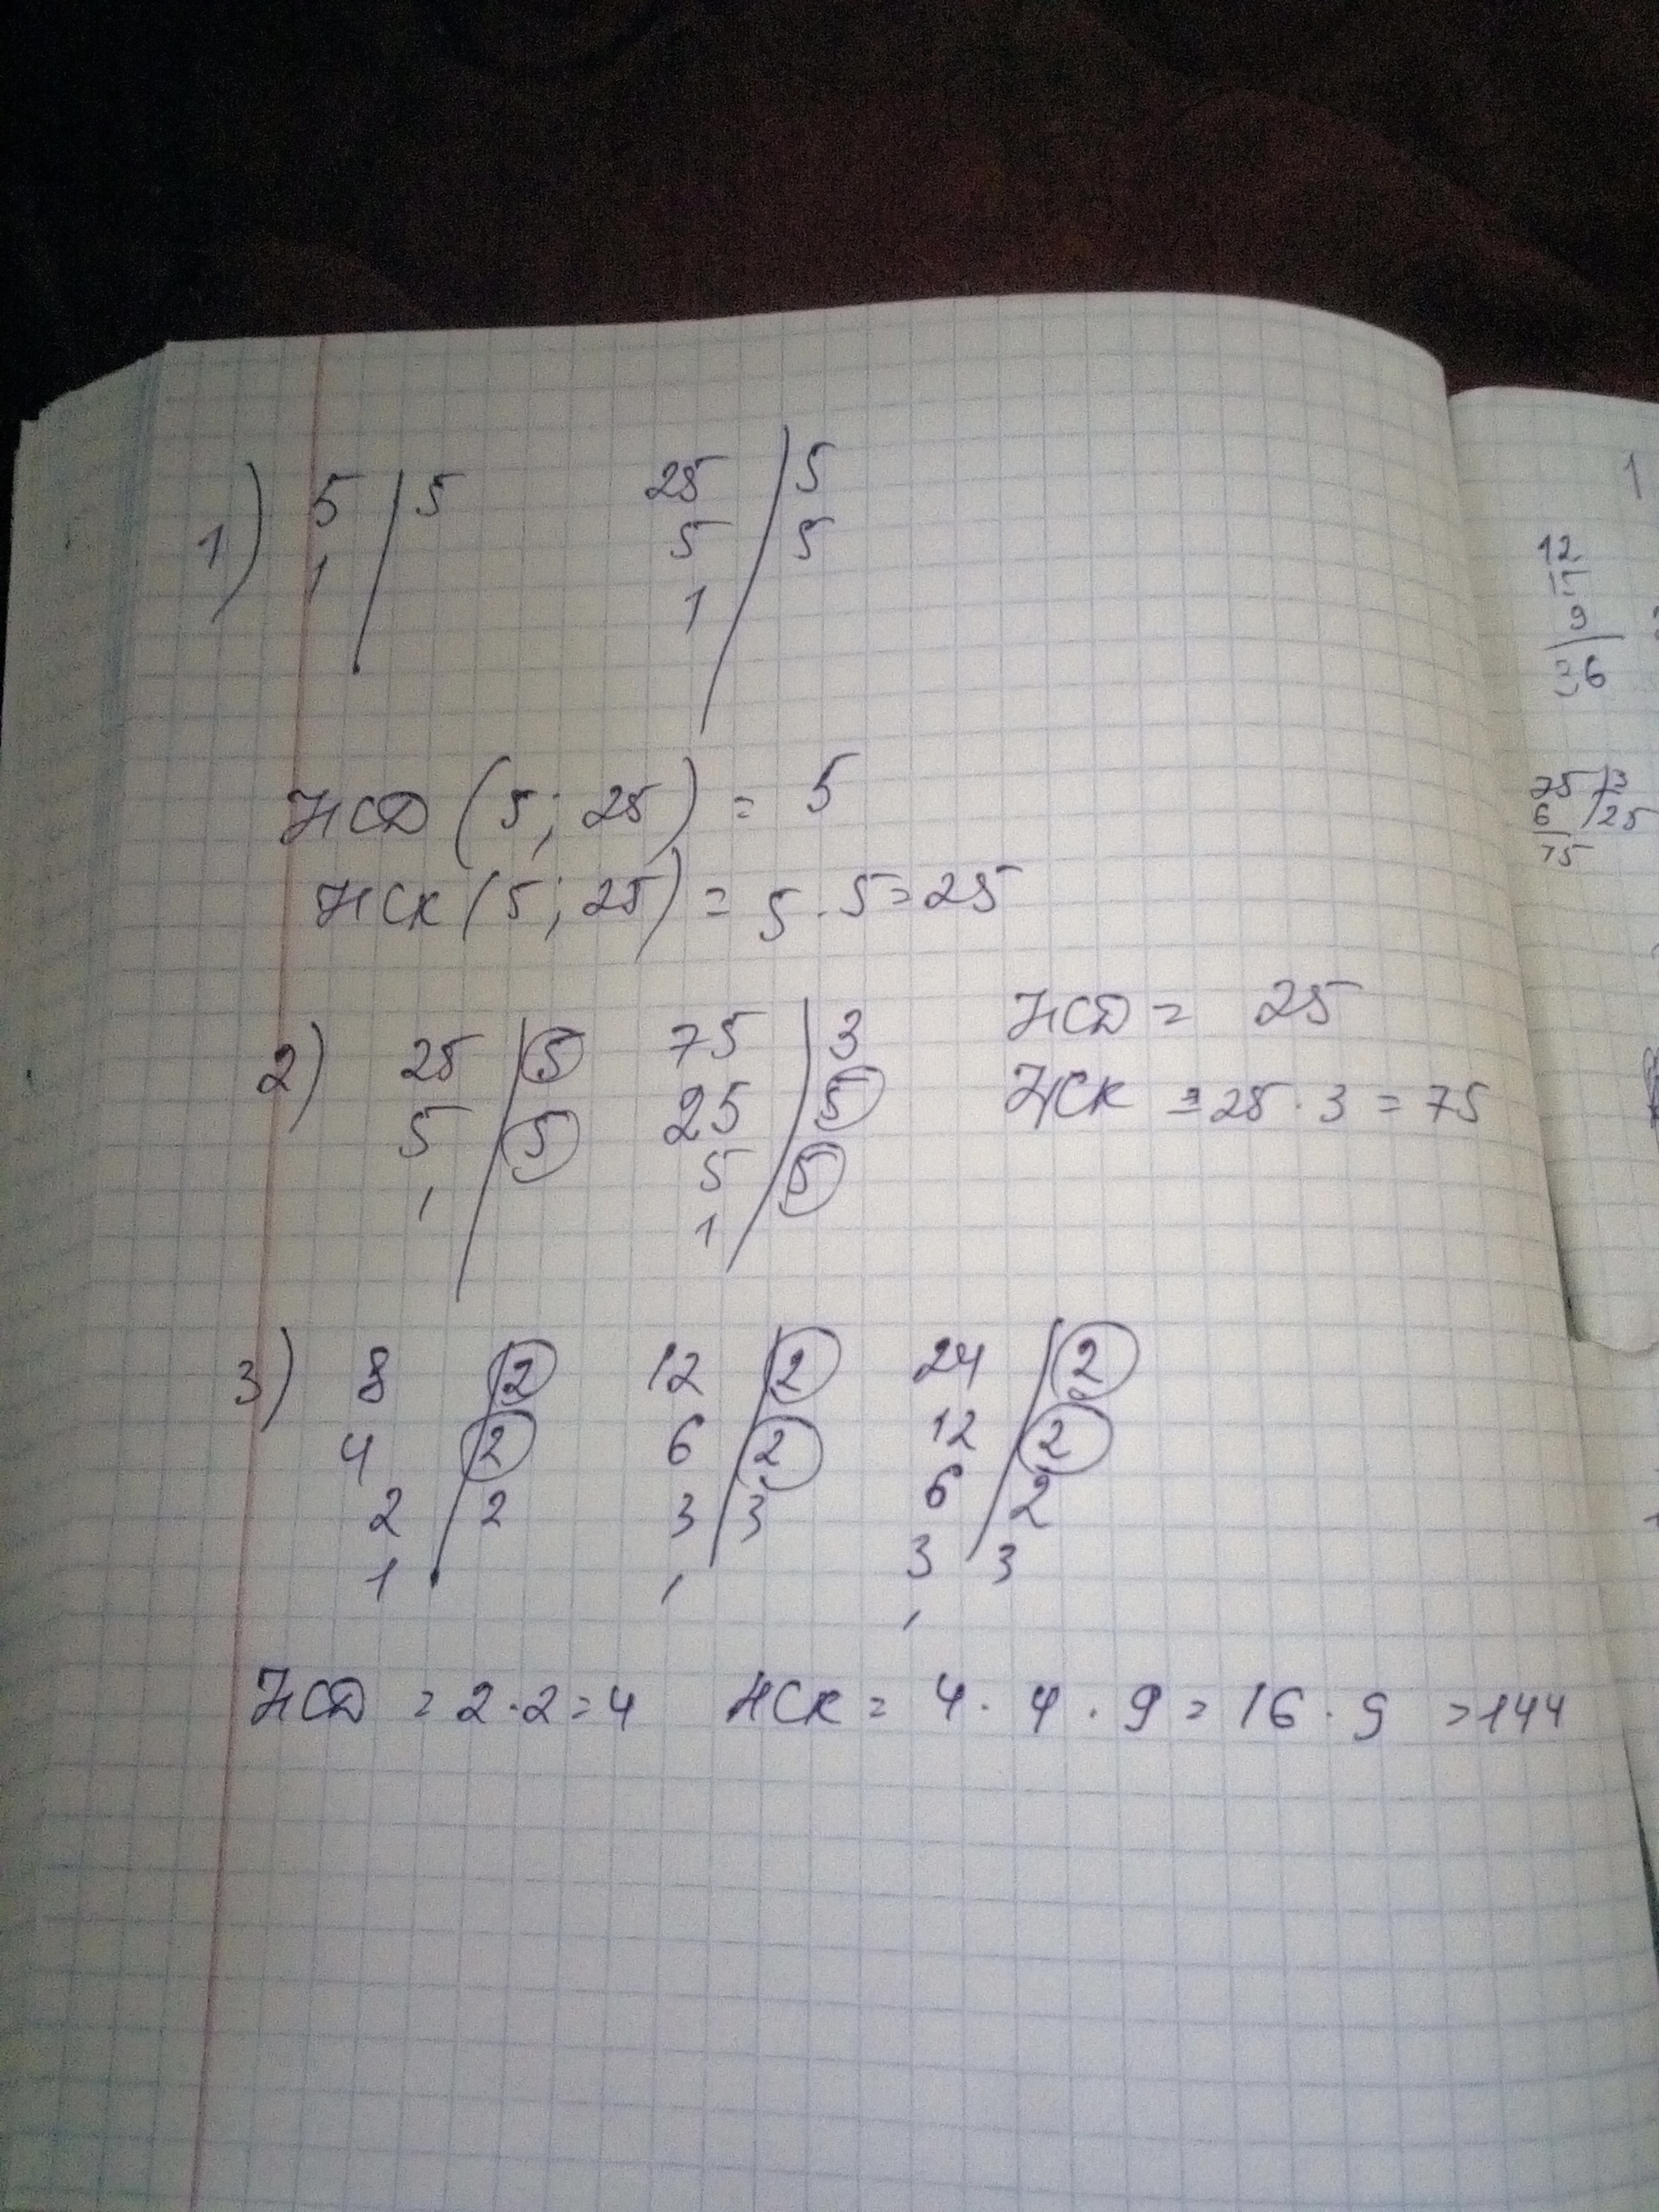 1) 5 | 5   25 | 5
1   5 | 5
1
НСД (5; 25) = 5
НСК (5; 25) = 5 · 5 = 25
2) 25 | 5   75 | 3   НСД = 25
5 | 5   25 | 5   НСК = 25 · 3 = 75
1   5 | 5
1
3) 8 | 2   12 | 2   24 | 2
4 | 2   6 | 2   12 | 2
2 | 2   3 | 3   6 | 2
1   1   3 | 3
1
НСД = 2 · 2 = 4   НСК = 4 · 4 · 9 = 16 · 9 = 144
1
12
9
36
75 | 3
6 | 25
15